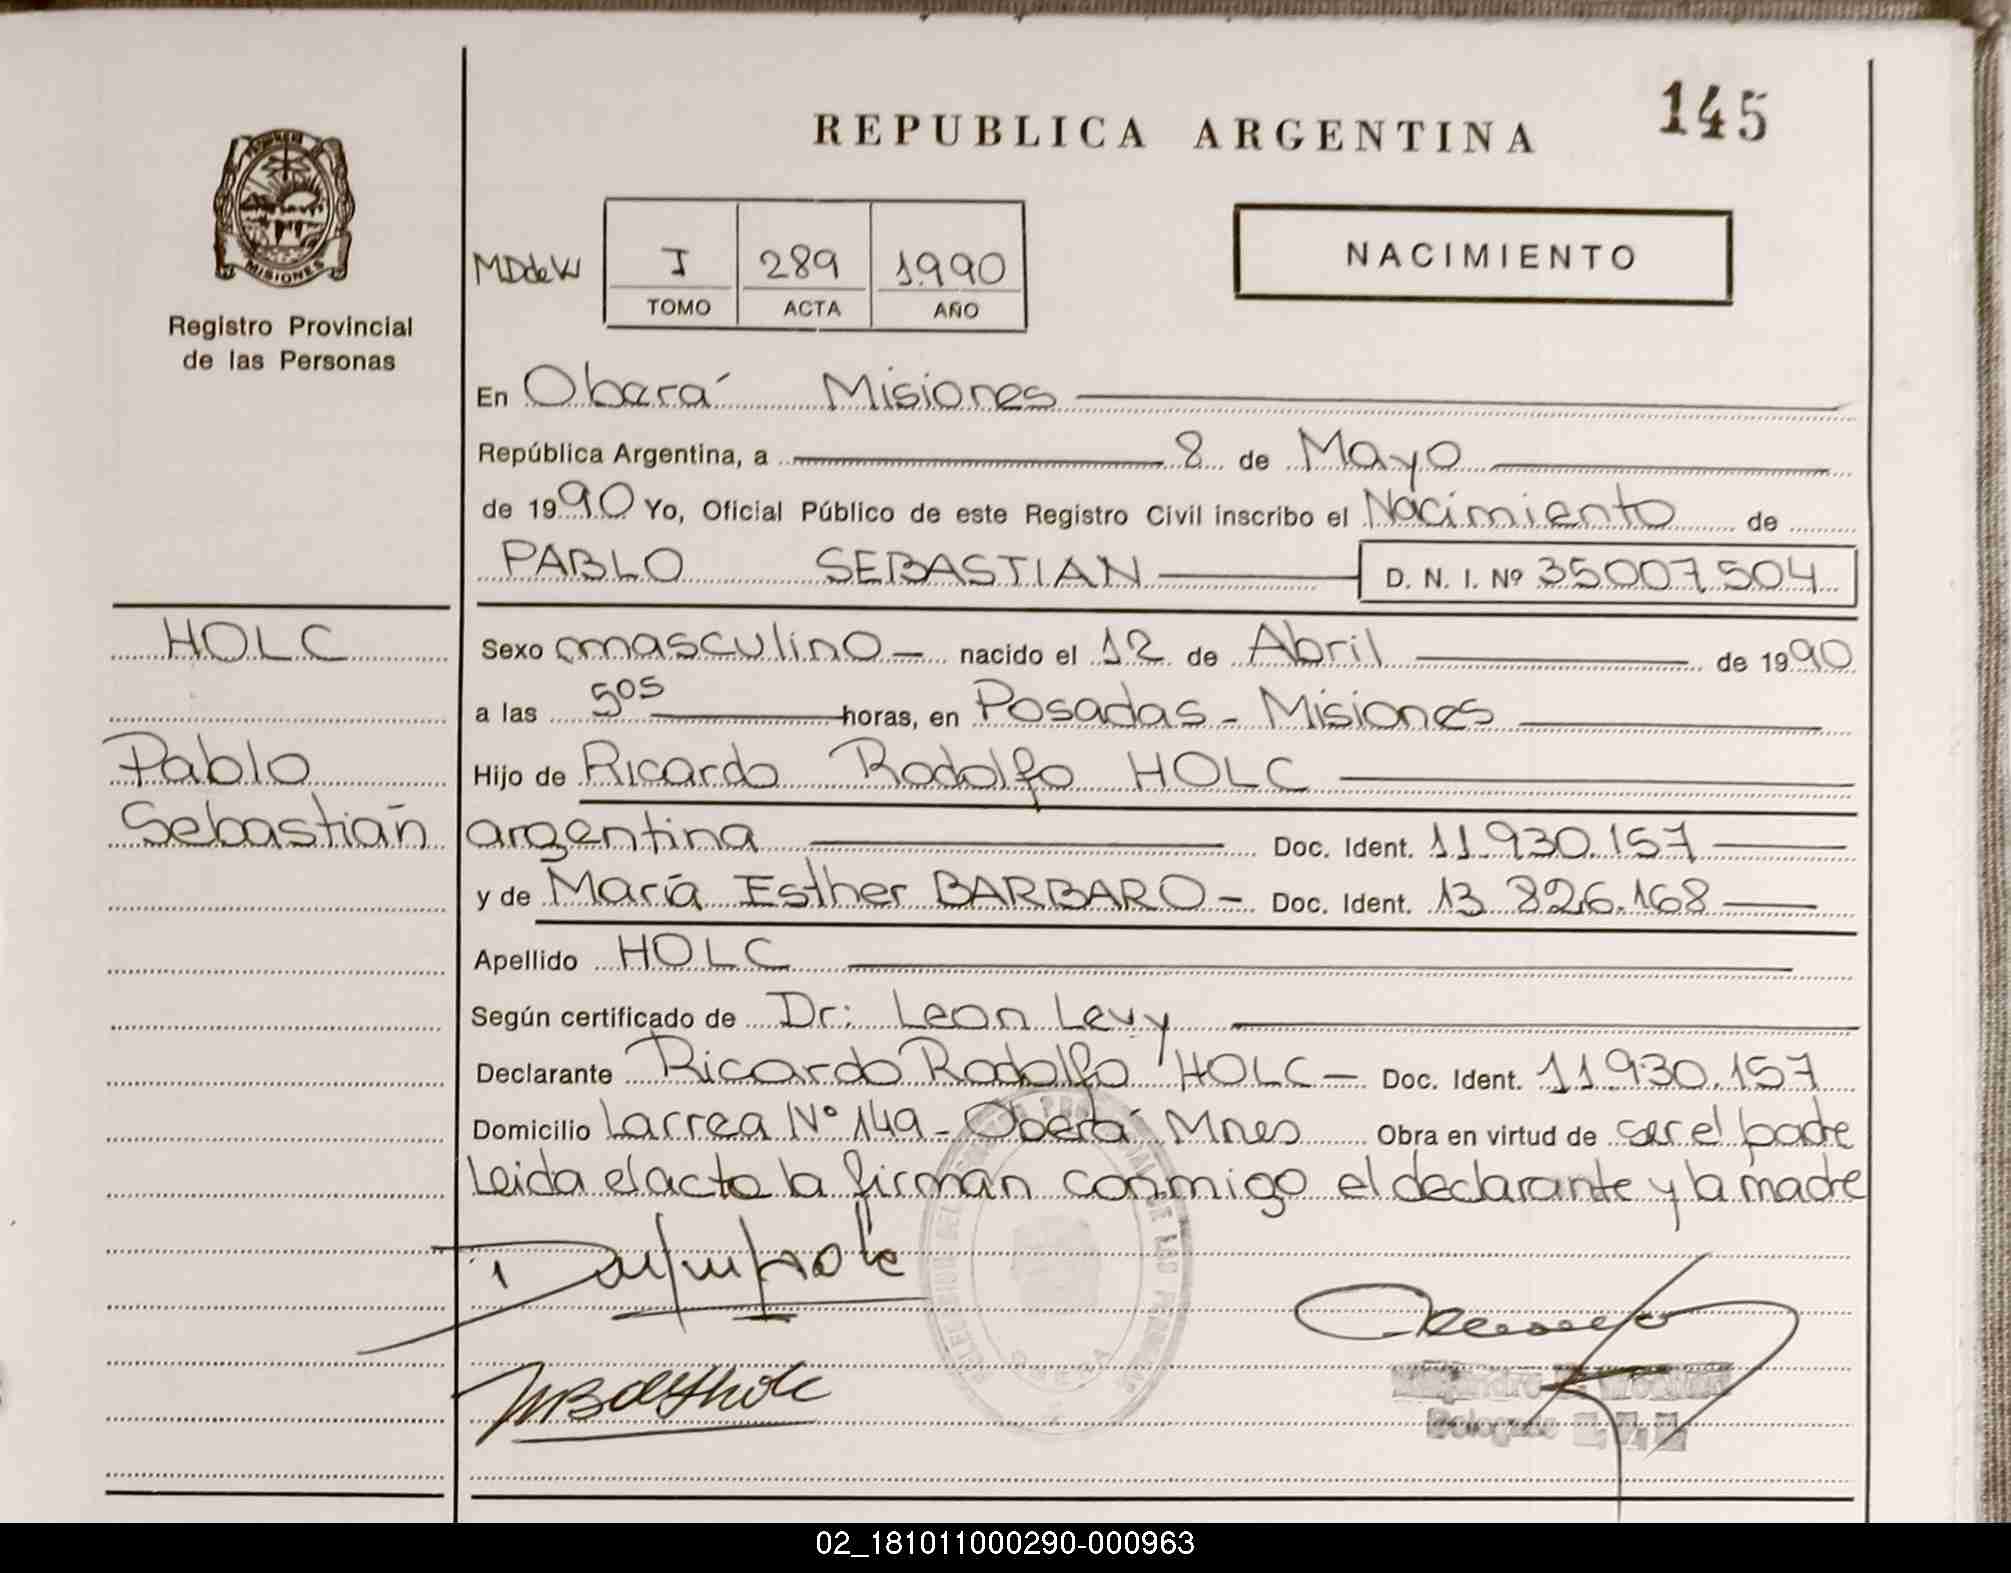 145
REPUBLICA ARGENTINA
MISIONES
Registro Provincial
de las Personas
MDdeW
I 289 1.990
TOMO ACTA AÑO
NACIMIENTO
En Oberá Misiones
República Argentina, a 8 de Mayo
de 1990 Yo, Oficial Público de este Registro Civil inscribo el Nacimiento de
PABLO SEBASTIAN D. N. I. Nº 35007504
HOLC
Pablo
Sebastián
Sexo masculino nacido el 12 de Abril de 1990
a las 5 05 horas, en Posadas - Misiones
Hijo de Ricardo Rodolfo HOLC
argentina Doc. Ident. 11.930.157
y de María Esther BARBARO - Doc. Ident. 13 826.168
Apellido HOLC
Según certificado de Dr: Leon Levy
Declarante Ricardo Rodolfo HOLC - Doc. Ident. 11.930.157
Domicilio Larrea Nº 149 - Oberá Mnes Obra en virtud de ser el padre
Leida el acta la firman conmigo el declarante y la madre
Delegado
02_181011000290-000963